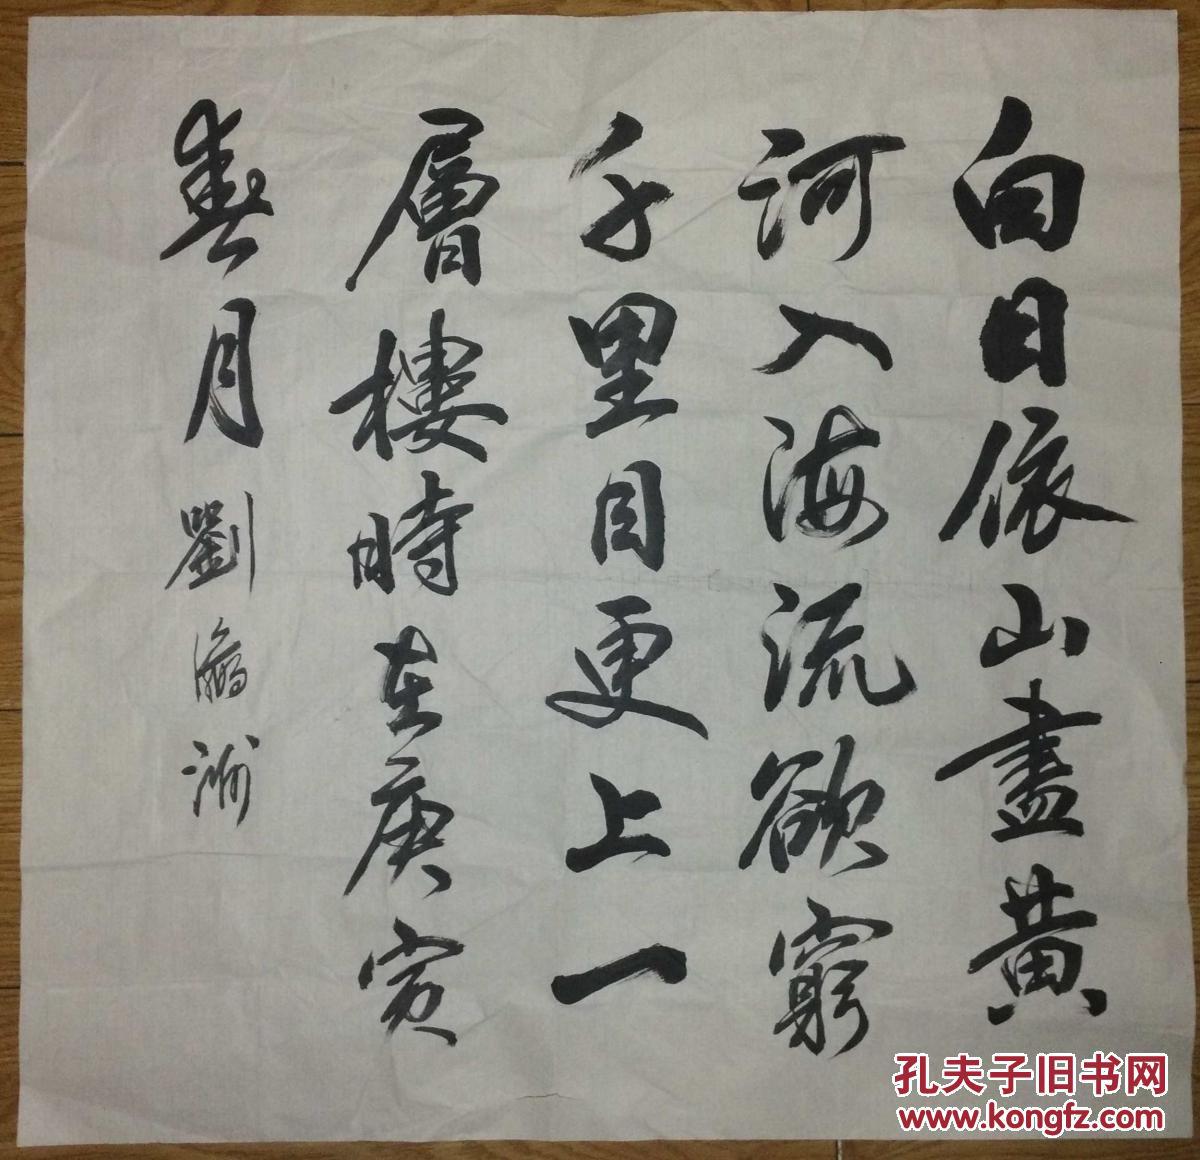 白日依山盡黃
河入海流欲窮
千里目更上一
層樓時在庚寅
春月劉瀛洲
孔夫子旧书网
www.kongfz.com